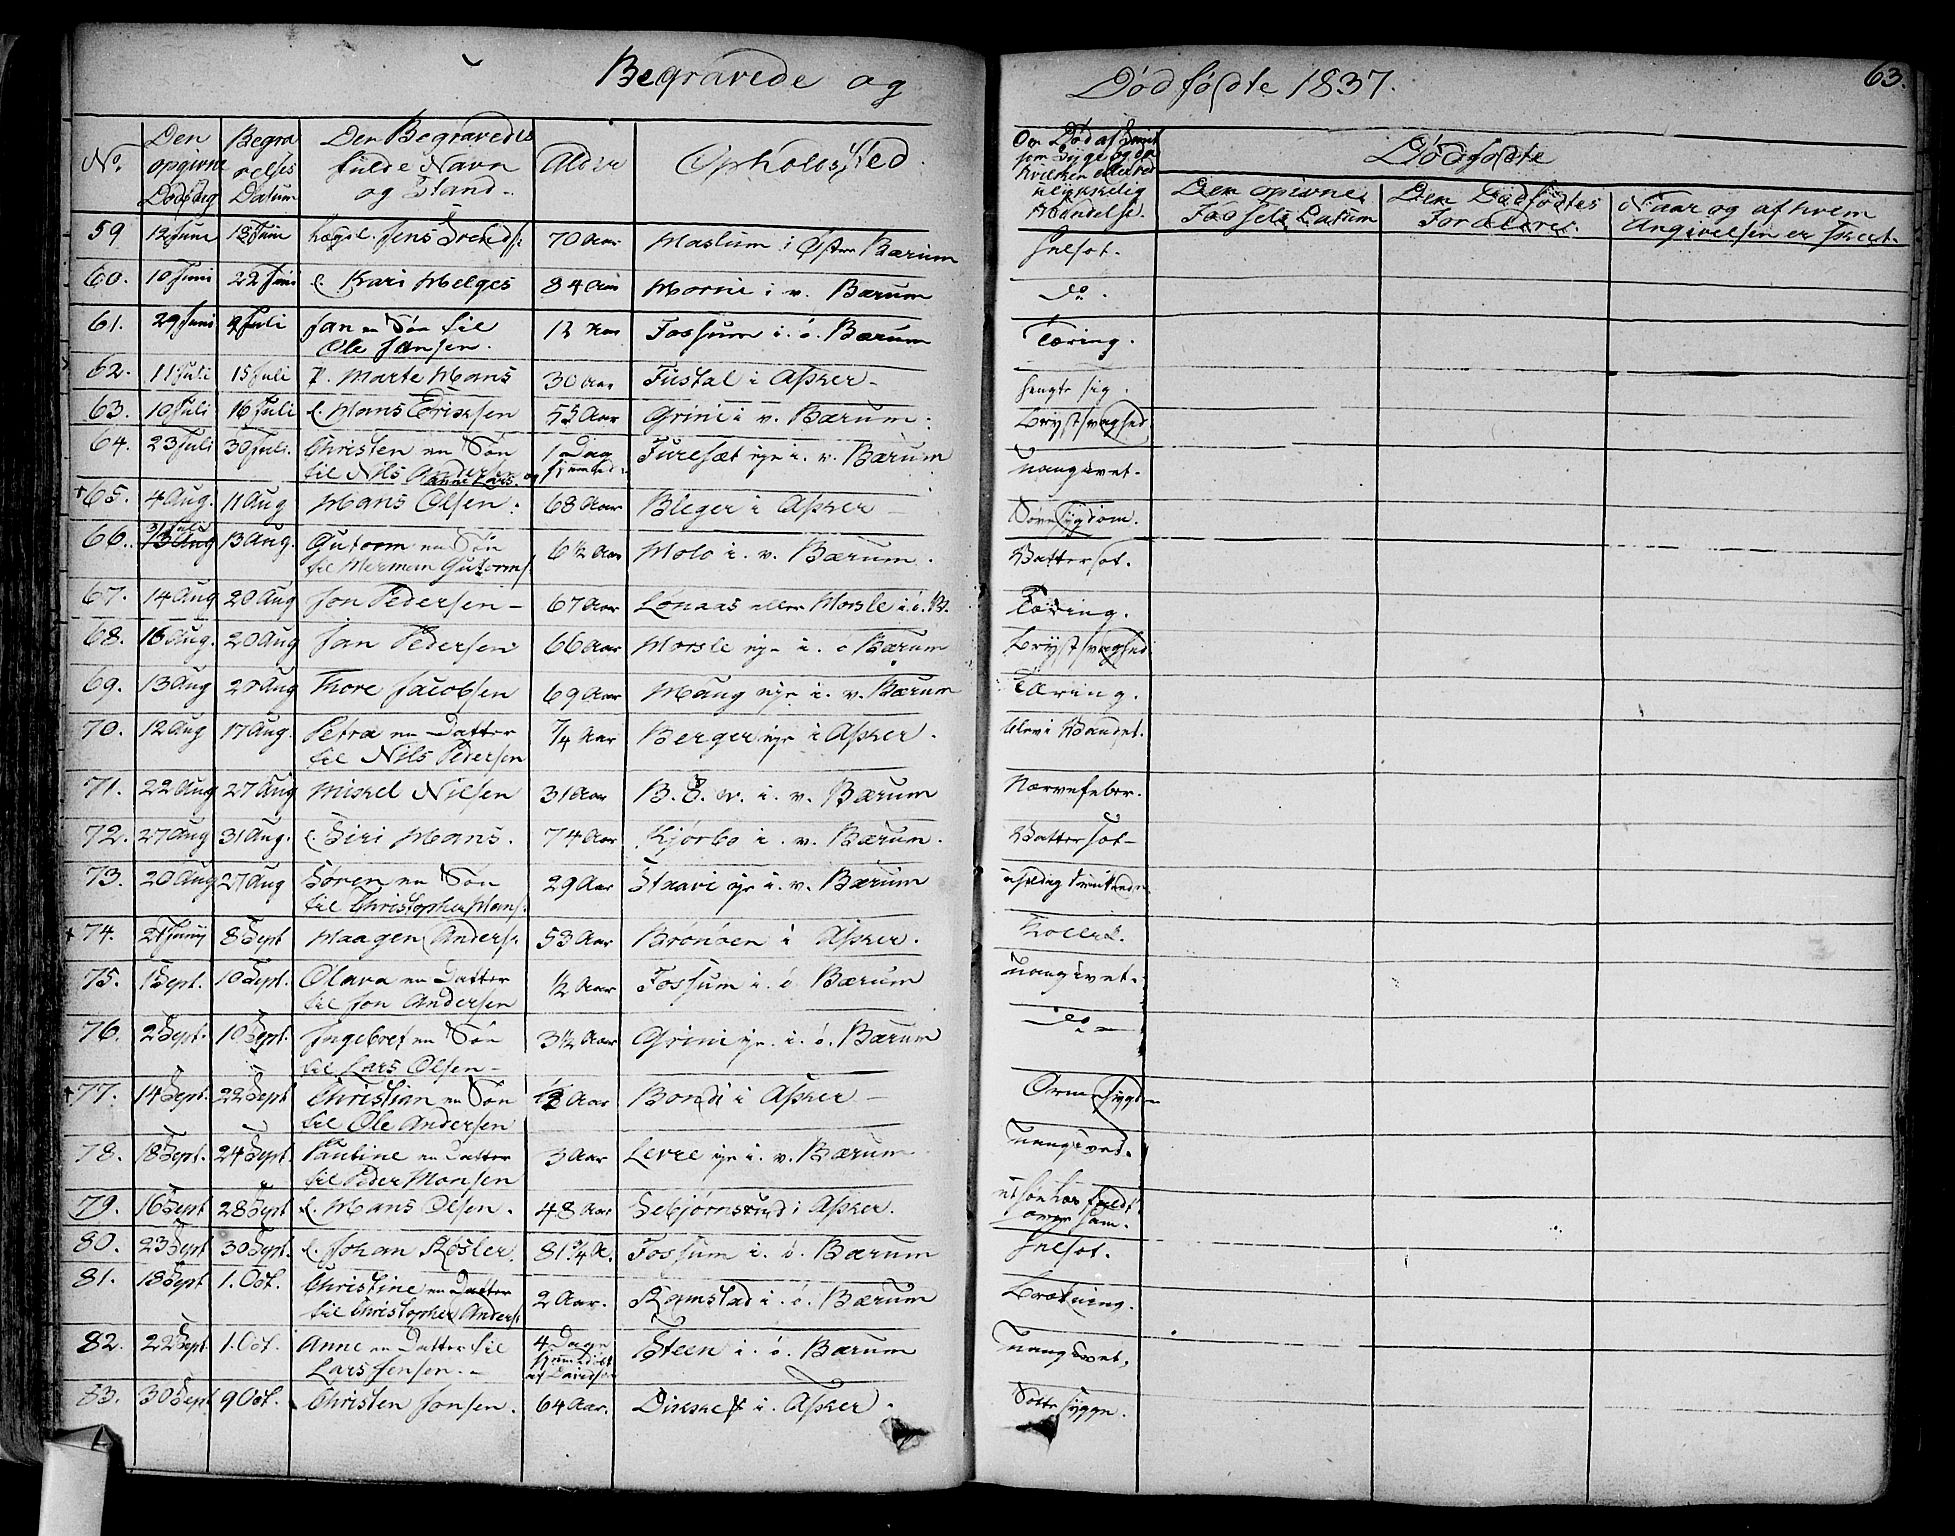 Begravede og Dødfødte 1837. 63.
No. Den opgivne Dødsdag Begravelses Datum Den Begravedes fulde Navn og Stand. Alder Opholdssted. Om Død af Smitsom Syge og da hvilken eller ved ulykkelig Hændelse. Dødfødte
Den opivne Fødsels Datum Den Dødfødtes Forældre. Naar og af hvem Angivelsen er skeet.
59 12 Juni 18 Juni Lægsl. Jens 70 Aar Haslum i Øster Bærum Ilsot.
60. 10 Juni 22 Juni E. Kari Helges 84 Aar Horni i v. Bærum do.
61. 29 Juni 2 Juli Jan en Søn til 12 Aar Fossum i. ö. Bærum Tæring.
Ole Jansen.
62. 11 Juli 15 Juli P. Marte Hans 30 Aar Fustal i Asker hengte sig.
63. 10 Juli 16 Juli E. Hans Erichsen 55 Aar Grini i v. Bærum. Brystsvaghed.
64. 23 Juli 30 Juli. Christen en Søn 1 Dag Furesæt eje i. v. Bærum uangivet.
til Nils Andersen og Anne Lars. hjemmed.
+65. 4 Aug. 11 Aug Hans Olsen. 68 Aar Bleger i Asker Sovesygdom.
66. 31 Juli 13 Aug. Gutorm en Søn 6½ Aar Holo i. v. Bærum. Vattersot.
til Herman Gutorms.
67. 14 Aug 20 Aug Jon Pedersen 67 Aar Lønaas eller Horsle i. ö. B. Tæring.
68. 16 Aug. 20 Aug Jan Pedersen 66 Aar Horsle eje i. ö Bærum Brystsvaghed
69. 13 Aug 20 Aug Thore Jacobsen 69 Aar Haug eje i. v. Bærum Tæring.
70. 12 Aug 17 Aug. Petra en Datter ¾ Aar Berger eje i Asker. blev i Vandet.
til Nils Pedersen
71. 22 Aug 27 Aug Mickel Nilsen 31 Aar B. S. v. i. v. Bærum Nærvefeber.
72. 27 Aug 31 Aug. E. Siri Hans. 74 Aar Kjørbo i. v. Bærum. Vattersot
73. 20 Aug 27 Aug Søren en Søn 29 Aar Staavi eje i. v. Bærum
til Christopher Hans.
+74. 21 Juny 8 Sept Haagen Anders. 53 Aar Brønøen i Asker.
75. 1 Sept. 10 Sept. Olava en Datter ½ Aar Fossum i. ö. Bærum uangivet.
til Jon Andersen
76. 2 Sept. 10 Sept. Ingebret en Søn 3½ Aar Grini eje. i. ö. Bærum do
til Lars Olsen
+77. 14 Sept. 22 Sept Christian en Søn Aar Bondi i Asker Ormesygdom
til Ole Andersen
78. 18 Sept. 24 Sept. Pauline en Datter 3 Aar Levre eje i. v. Bærum uangived.
til Peder Hansen
79. 16 Sept 28 Sept. E. Hans Olsen. 48 Aar Sebjørnsrud i Asker. over ham.
80. 23 Sept 30 Sept. E. Johan Røsler. 81¾ A. Fossum i. ö. Bærum Ilsot.
81. 18 Sept 1. Oct. Christine en Datter 2 Aar. Ramstad i. ö. Bærum Brækning.
til Christopher Anders.
82. 22 Sept. 1. Oct. Anne en Datter til 4 Dage Steen i. ö. Bærum uangivet.
Lars Jensen. hjemmedøbt af Davidsen
83. 30 Sept 9 Oct. Christen Jonsen. 64 Aar. i. Asker. Sottesygge.